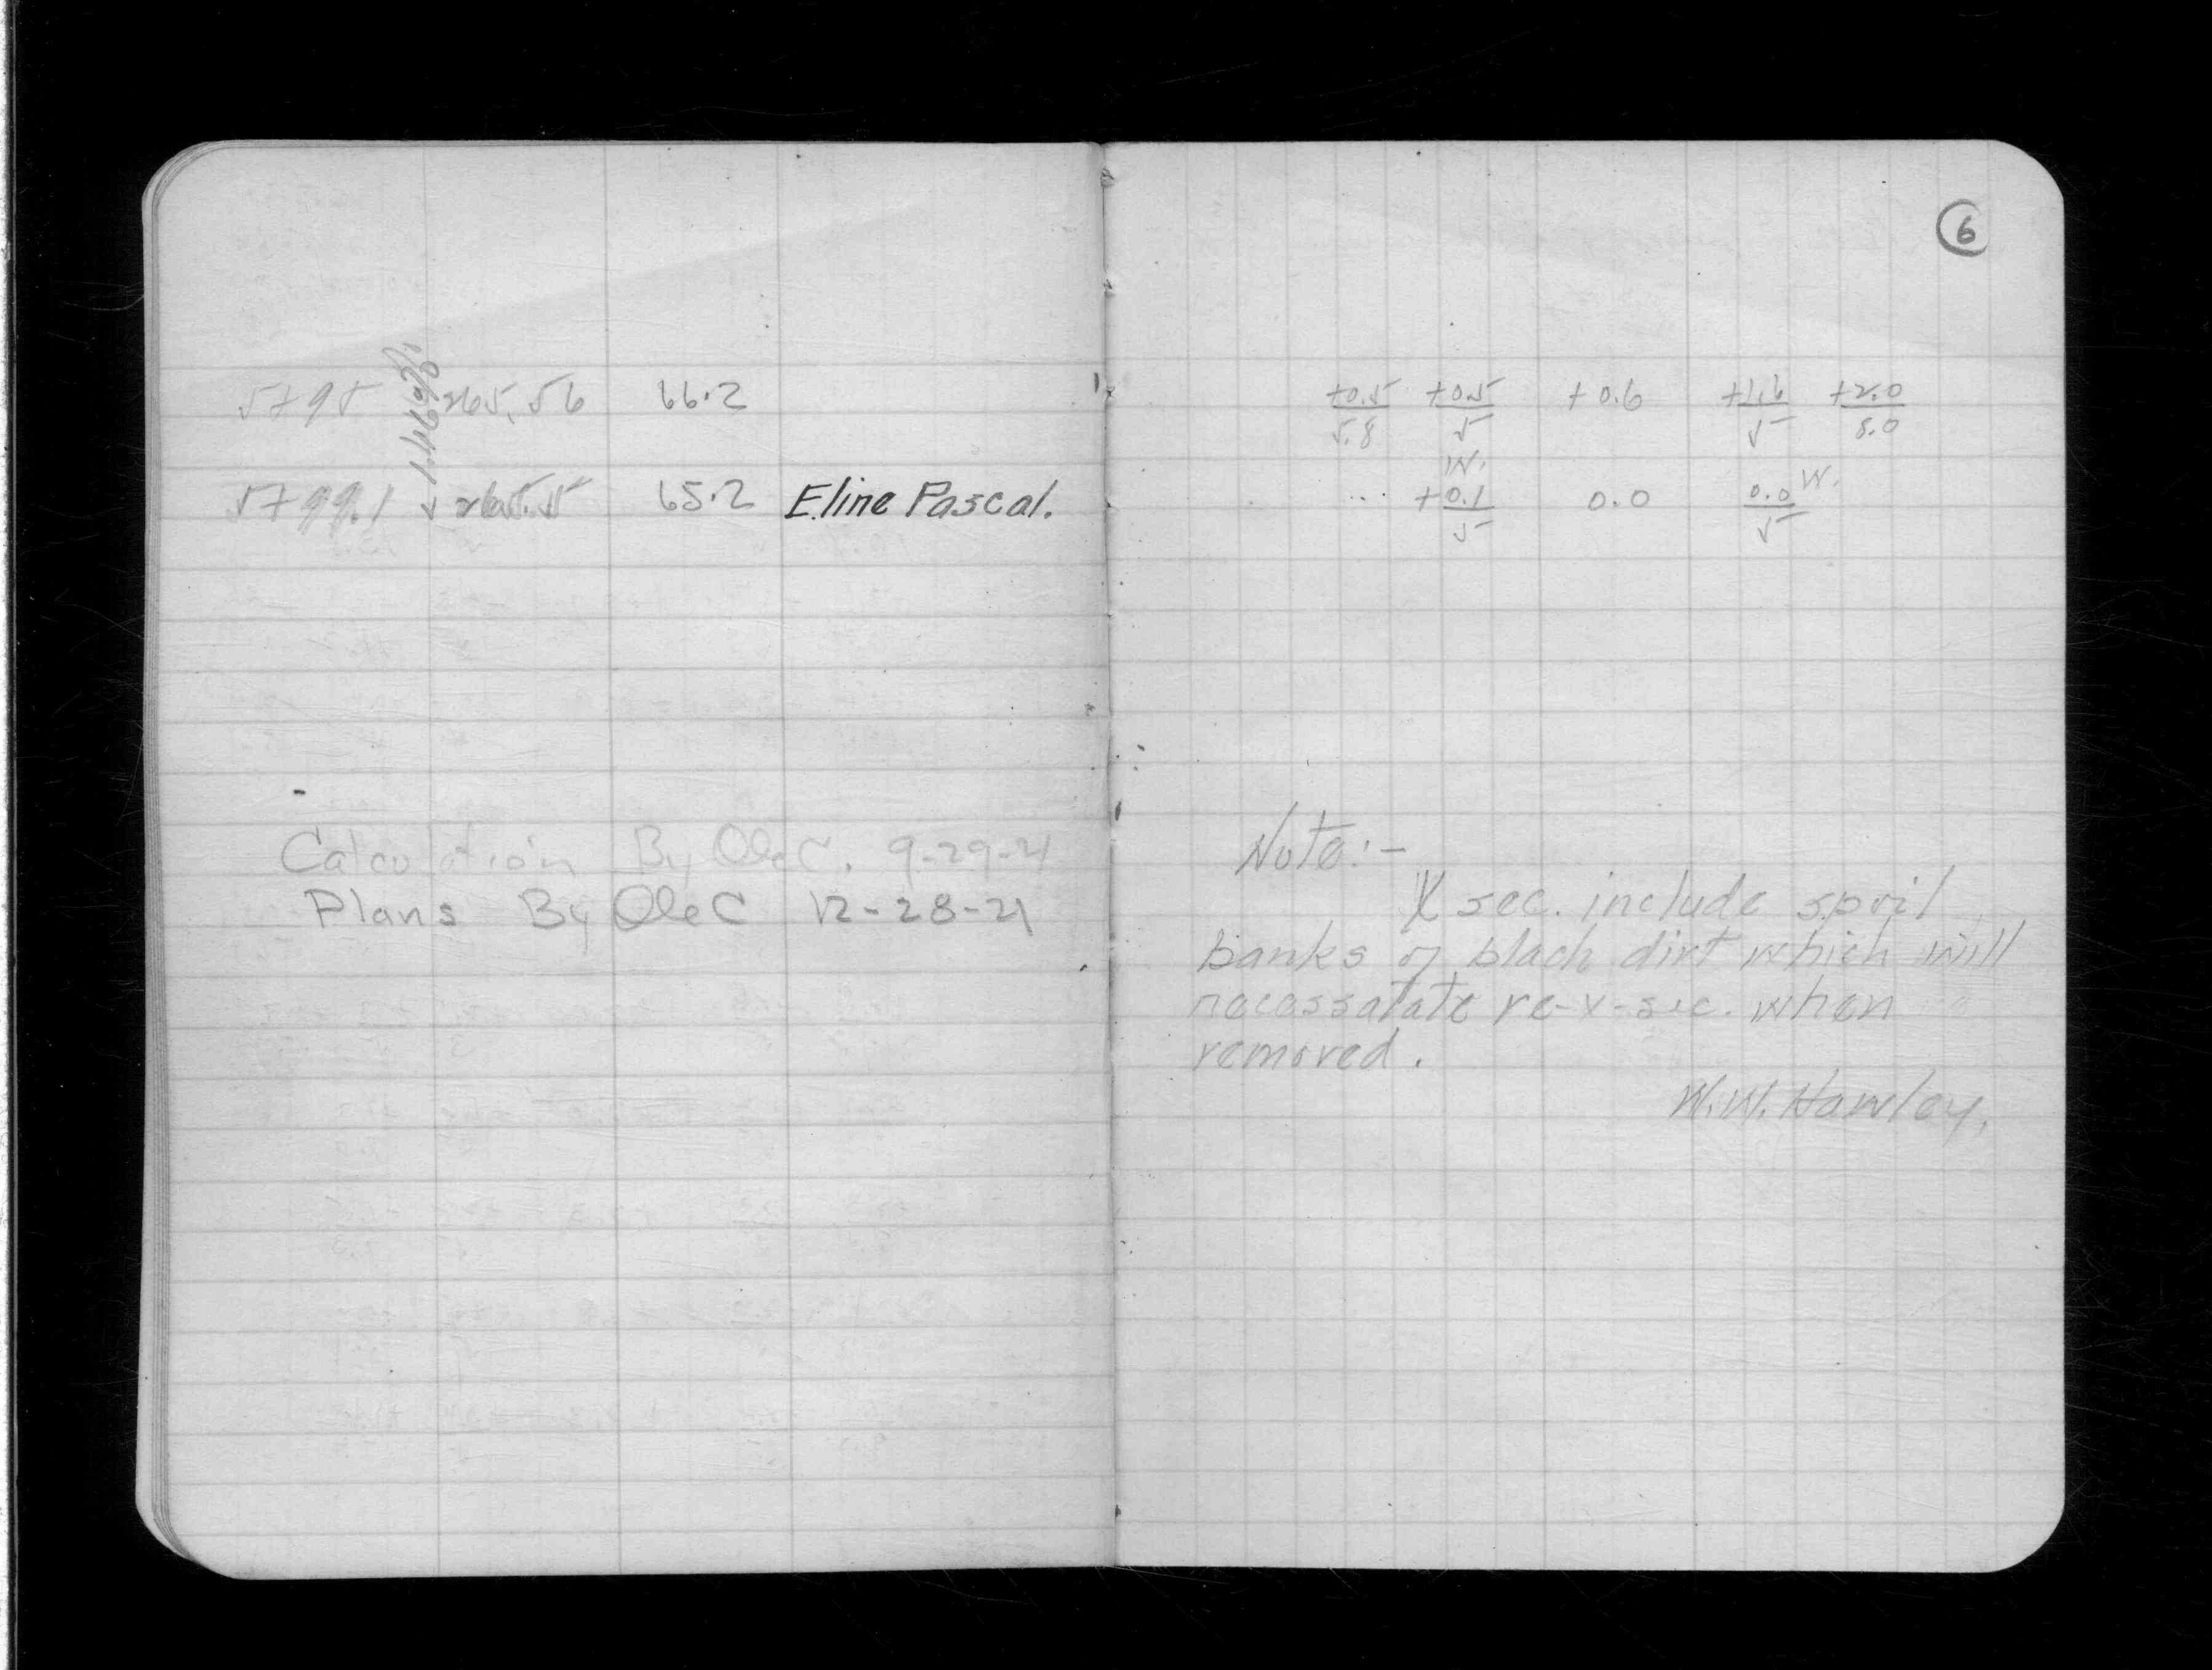 6
5+95 265.56 66.2 +0.5/5.8 +0.5/5 +0.6 +1.6/5 +2.0/8.0
W.
5+99.1 265.5 65.2 E.line Pascal. +0.1/5 0.0 0.0/5 W.
Calculation By OleC. 9-29-21
Plans By OleC 12-28-21
Note:-
X sec. include spoil
banks of black dirt which will
necessatate re-x-sec. when
removed.
W.W. Hawley.